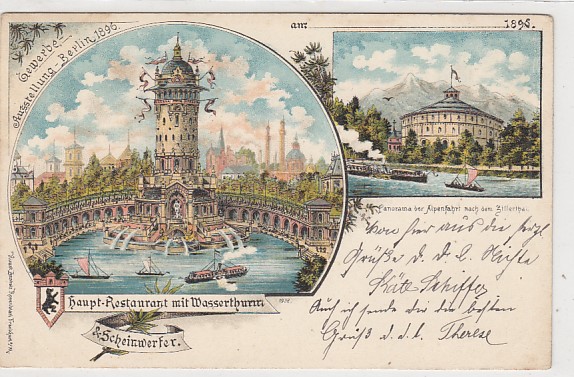 Gewerbe-
Ausstellung - Berlin 1896.
am 1896.
Panorama der Alpenfahrt nach dem Zillerthal.
Haupt-Restaurant mit Wasserthurm
& Scheinwerfer.
Von hier aus die
Grüße d. d. l.
Käte Schiffer
Auch ich sende dir die besten
Grüß d. d. l. Therese